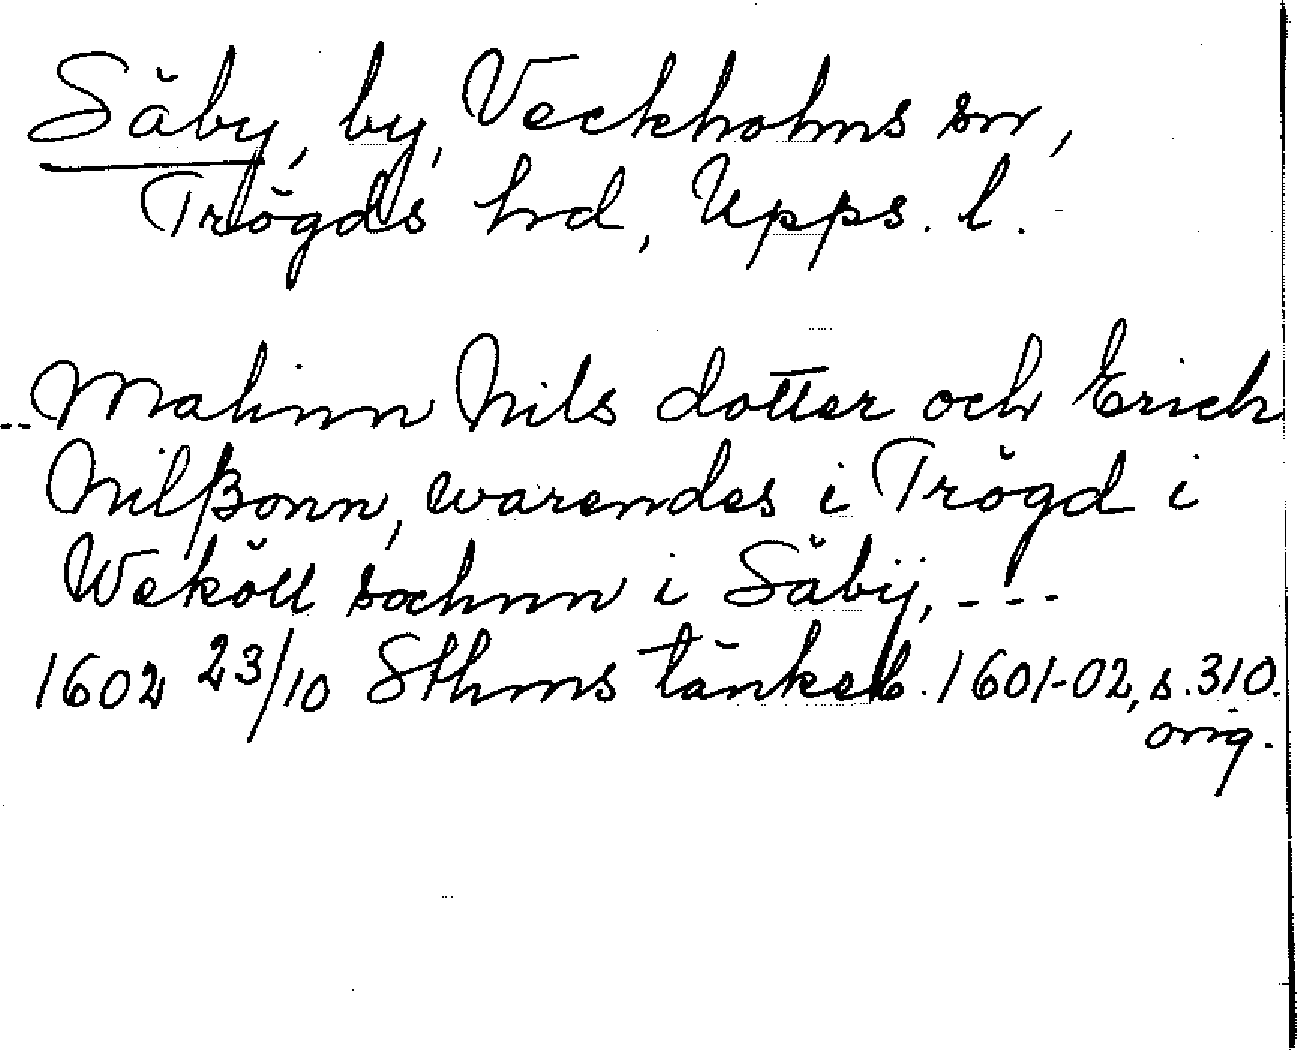 Säby, by, Veckholms sn,
Trögds hd, Upps. l.
--Malinn Nils dotter och Erich
Nilßonn, warendes i Trögd i
Weköll sochnn i Säbÿ, ---
1602 23/10 Sthms tänkeb. 1601-02, s. 310.
orig.